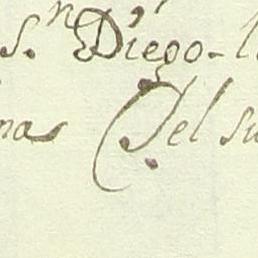 S.n Diego-
nas Del su